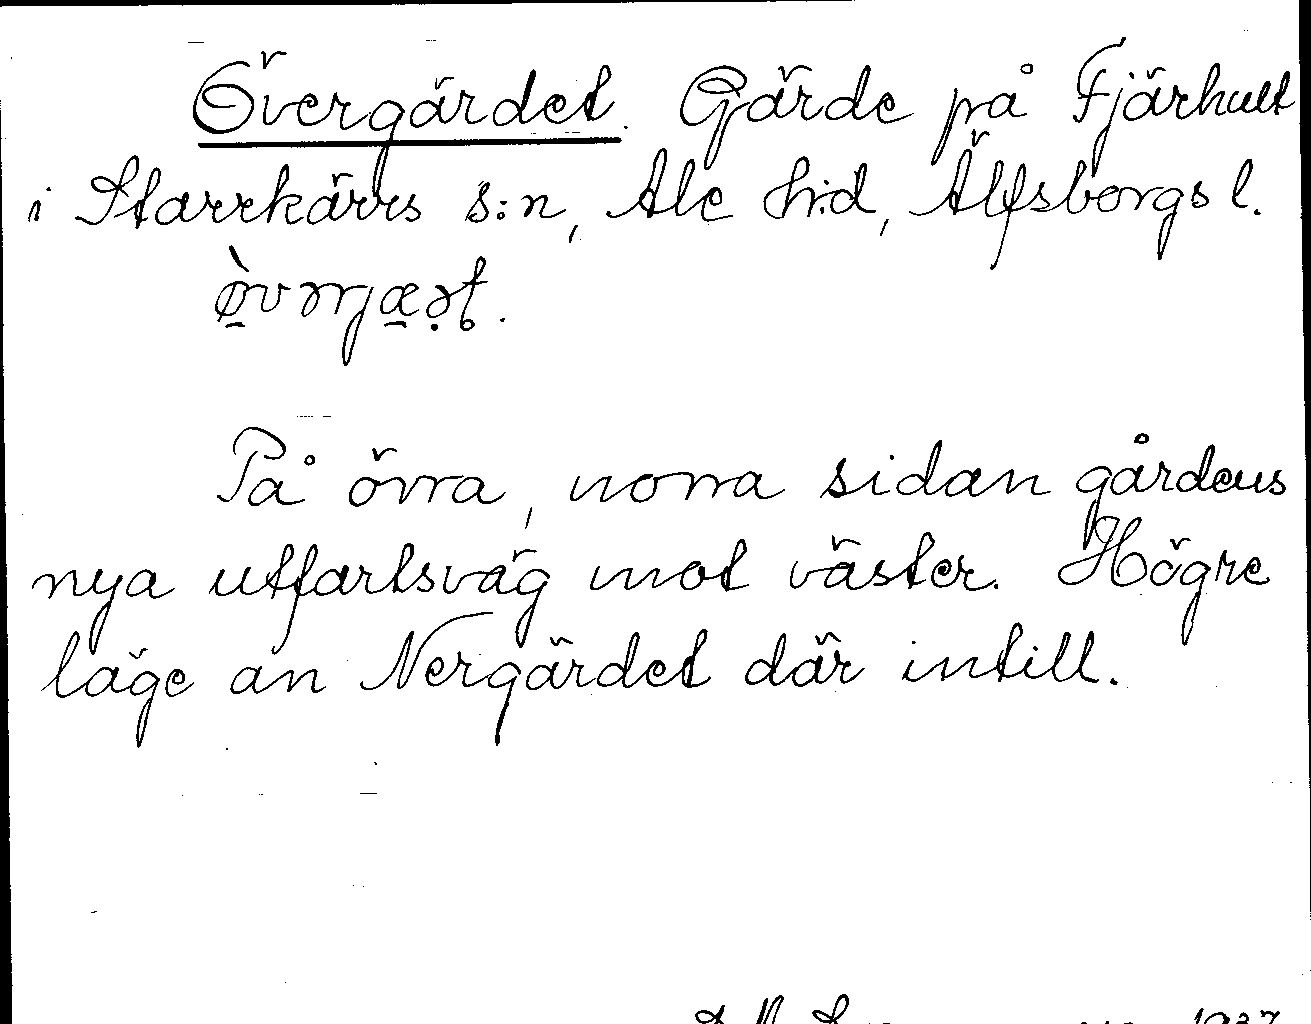 Övergärdet. Gärde på Fjärhult
i Starrkärrs s:n, Ale h:d, Älfsborgs l.
På övra, norra sidan gårdens
nya utfartsväg mot väster. Högre
läge än Nergärdet där intill.